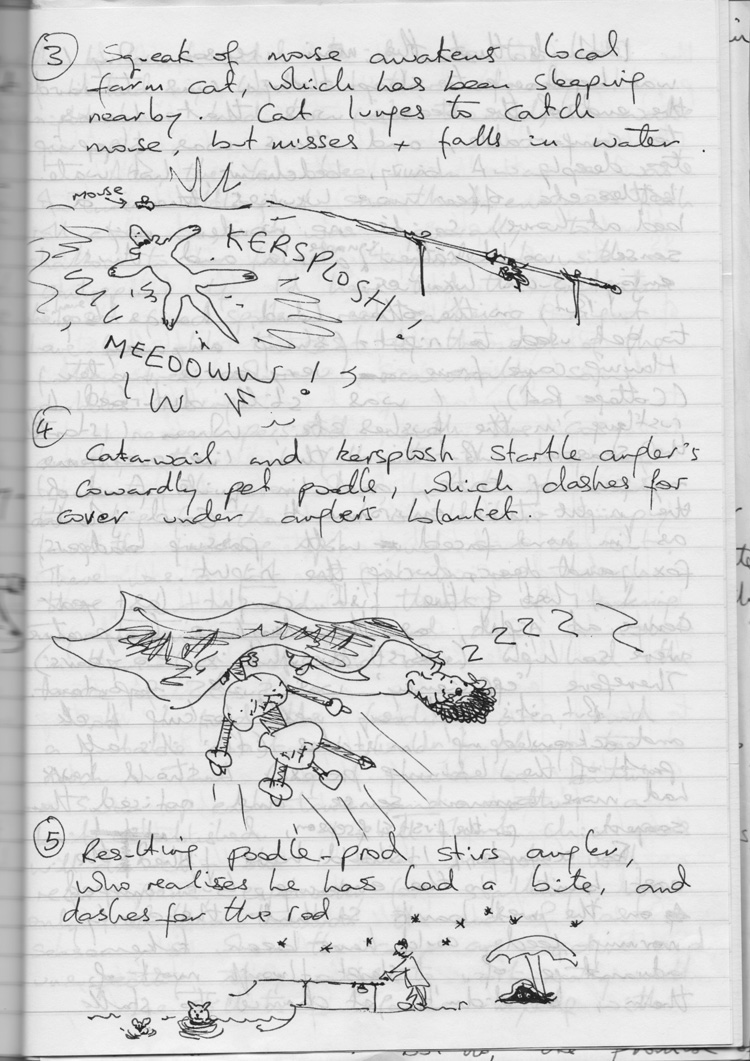 3 Squeak of mouse awakens local
farm cat, which has been sleeping
nearby. Cat lunges to catch
mouse, but misses + falls in water.
MOUSE
KERSPLOSH!
MEEOOWW!
W
4
Catawail and kersplosh startle angler's
cowardly pet poodle, which dashes for
cover under angler's blanket.
Z Z Z Z Z
5 Resulting poodle-prod stirs angler,
who realises he has had a bite, and
dashes for the rod